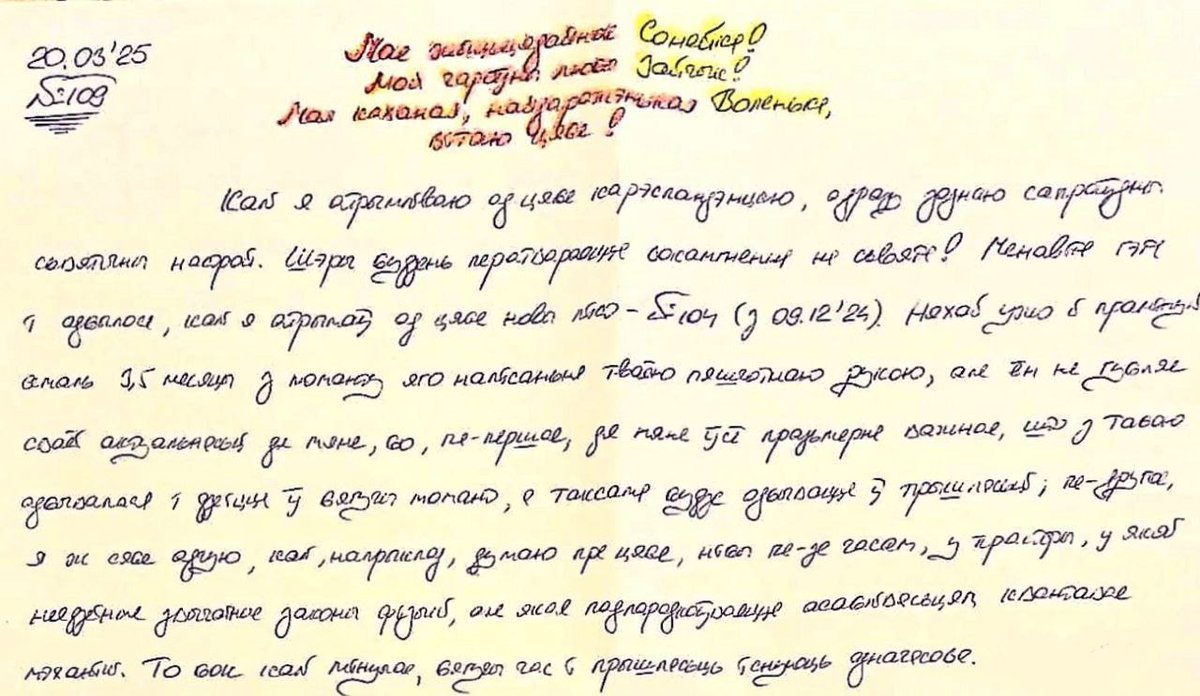 20.03'25
№109
Мае Сонейка!
Мой гарбуны любы Зайчык!
Мая каханая, Воленька,
вітаю цябе!
Калі я атрымліваю ад цябе карэспандэнцыю, адразу зазнаю сапраўдны
сьвяточны настрой. Шэры будзень ператвараецца на сьвята! Менавіта гэтак
і адбылося, калі я атрымаў ад цябе новы ліст - №104 (з 09.12'24). Няхай ужо й прайшлі
амаль 3,5 месяцы з моманту яго напісаньня тваёю пяшчотнаю рукою, але ён не губляе
сваёй актуальнасьці для мяне, бо, па-першае, для мяне ўсё празьмерна важнае, што з табою
адбывалася і дзеіцца ў бягучы момант, а таксама будзе адбывацца ў прышласьці; па-другое,
я ж сябе адчуваю, калі, напрыклад, думаю пра цябе, нібы па-за часам, у прасторы, у якой
звычайныя законы фізыкі, але якая падпарадкоўваецца асаблівасьцям квантавае
мэханікі. То бок калі мінулае, бягучы час і прышласьць існуюць адначасова.